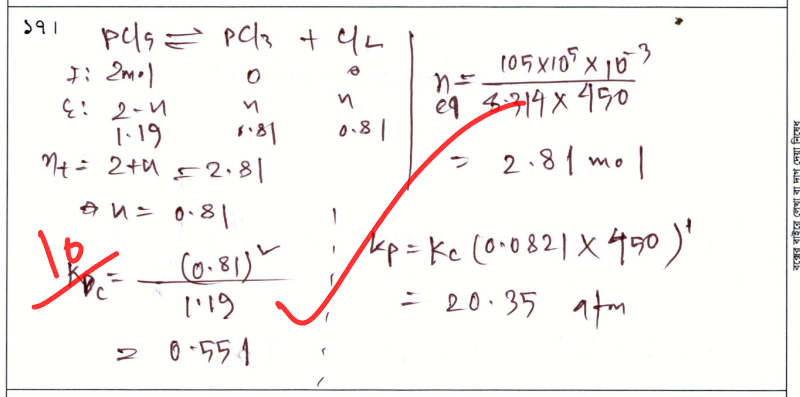 ১৭।
PCl5 ⇌ PCl3 + Cl2
I: 2mol 0 0
E: 2-n n n
1.19 0.81 0.81
nt = 2+n = 2.81
n = 0.81
10
Kc = (0.81)² / 1.19
= 0.551
n eq = 105×10⁵ × 10⁻³ / 8.314 × 450
= 2.81 mol
Kp = Kc (0.0821 × 450)¹
= 20.35 atm
বক্সের বাইরে লেখা বা দাগ দেয়া নিষেধ